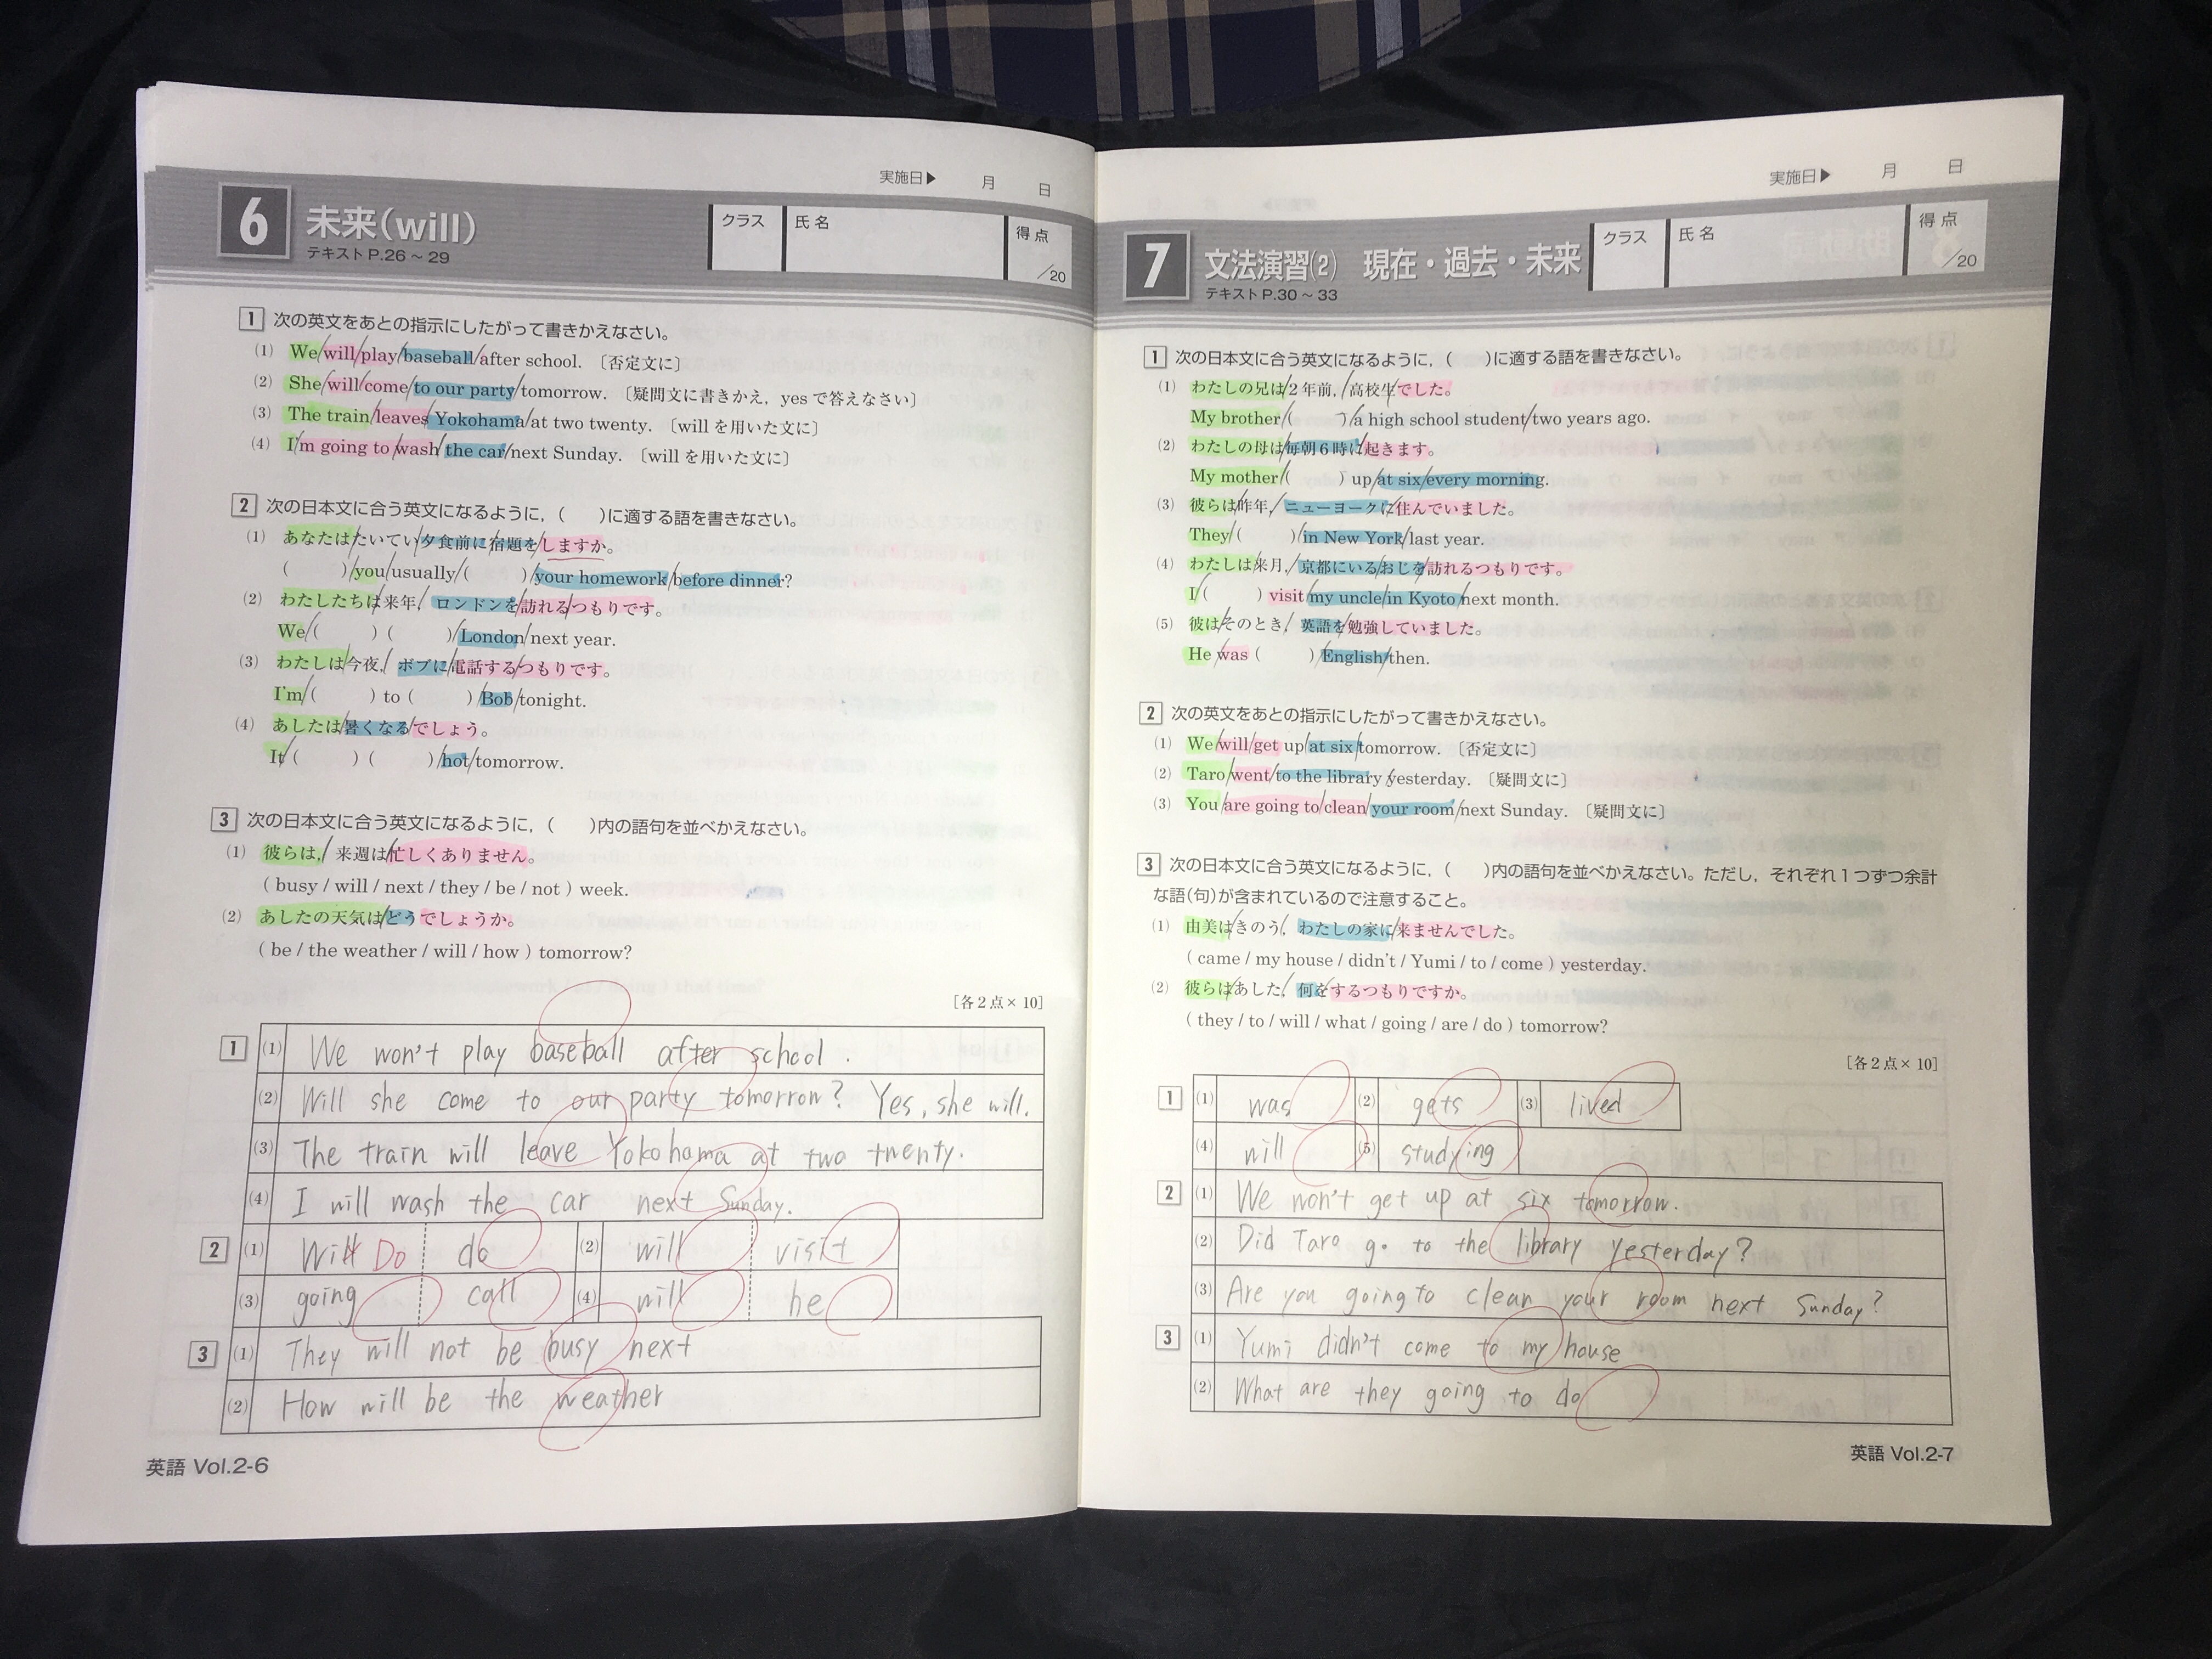 実施日▶ 月 日
6 未来(will)
テキスト P.26 ~ 29
クラス 氏名 得点 /20
1 次の英文をあとの指示にしたがって書きかえなさい。
(1) We/will/play/baseball/after school. 〔否定文に〕
(2) She/will/come/to our party/tomorrow. 〔疑問文に書きかえ, yes で答えなさい〕
(3) The train/leaves/Yokohama/at two twenty. 〔will を用いた文に〕
(4) I'm going to/wash/the car/next Sunday. 〔will を用いた文に〕
2 次の日本文に合う英文になるように, ( )に適する語を書きなさい。
(1) あなたは/たいてい/夕食前に/宿題を/しますか。
( )/you/usually/( )/your homework/before dinner?
(2) わたしたちは/来年,/ロンドンを/訪れる/つもりです。
We/( ) ( )/London/next year.
(3) わたしは/今夜,/ボブに/電話する/つもりです。
I'm/( ) to ( )/Bob/tonight.
(4) あしたは/暑くなる/でしょう。
It/( ) ( )/hot/tomorrow.
3 次の日本文に合う英文になるように, ( )内の語句を並べかえなさい。
(1) 彼らは,/来週は/忙しくありません。
( busy / will / next / they / be / not ) week.
(2) あしたの天気は/どうでしょうか。
( be / the weather / will / how ) tomorrow?
[各2点×10]
1 (1) We won't play baseball after school.
(2) Will she come to our party tomorrow? Yes, she will.
(3) The train will leave Yokohama at two twenty.
(4) I will wash the car next Sunday.
2 (1) Will Do do (2) will visit
(3) going call (4) will be
3 (1) They will not be busy next
(2) How will be the weather
英語 Vol.2-6
実施日▶ 月 日
7 文法演習(2) 現在・過去・未来
テキスト P.30 ~ 33
クラス 氏名 得点 /20
1 次の日本文に合う英文になるように, ( )に適する語を書きなさい。
(1) わたしの兄は/2年前,/高校生/でした。
My brother/( )/a high school student/two years ago.
(2) わたしの母は/毎朝6時に/起きます。
My mother/( ) up/at six/every morning.
(3) 彼らは/昨年,/ニューヨークに/住んでいました。
They/( )/in New York/last year.
(4) わたしは/来月,/京都にいる/おじを/訪れるつもりです。
I/( ) visit/my uncle/in Kyoto/next month.
(5) 彼は/そのとき,/英語を/勉強していました。
He was ( )/English/then.
2 次の英文をあとの指示にしたがって書きかえなさい。
(1) We/will/get up/at six/tomorrow. 〔否定文に〕
(2) Taro/went/to the library/yesterday. 〔疑問文に〕
(3) You/are going to/clean/your room/next Sunday. 〔疑問文に〕
3 次の日本文に合う英文になるように, ( )内の語句を並べかえなさい。ただし, それぞれ1つずつ余計
な語(句)が含まれているので注意すること。
(1) 由美は/きのう,/わたしの家に/来ませんでした。
( came / my house / didn't / Yumi / to / come ) yesterday.
(2) 彼らは/あした,/何を/するつもりですか。
( they / to / will / what / going / are / do ) tomorrow?
[各2点×10]
1 (1) was (2) gets (3) lived
(4) will (5) studying
2 (1) We won't get up at six tomorrow.
(2) Did Taro go to the library yesterday?
(3) Are you going to clean your room next Sunday?
3 (1) Yumi didn't come to my house
(2) What are they going to do
英語 Vol.2-7